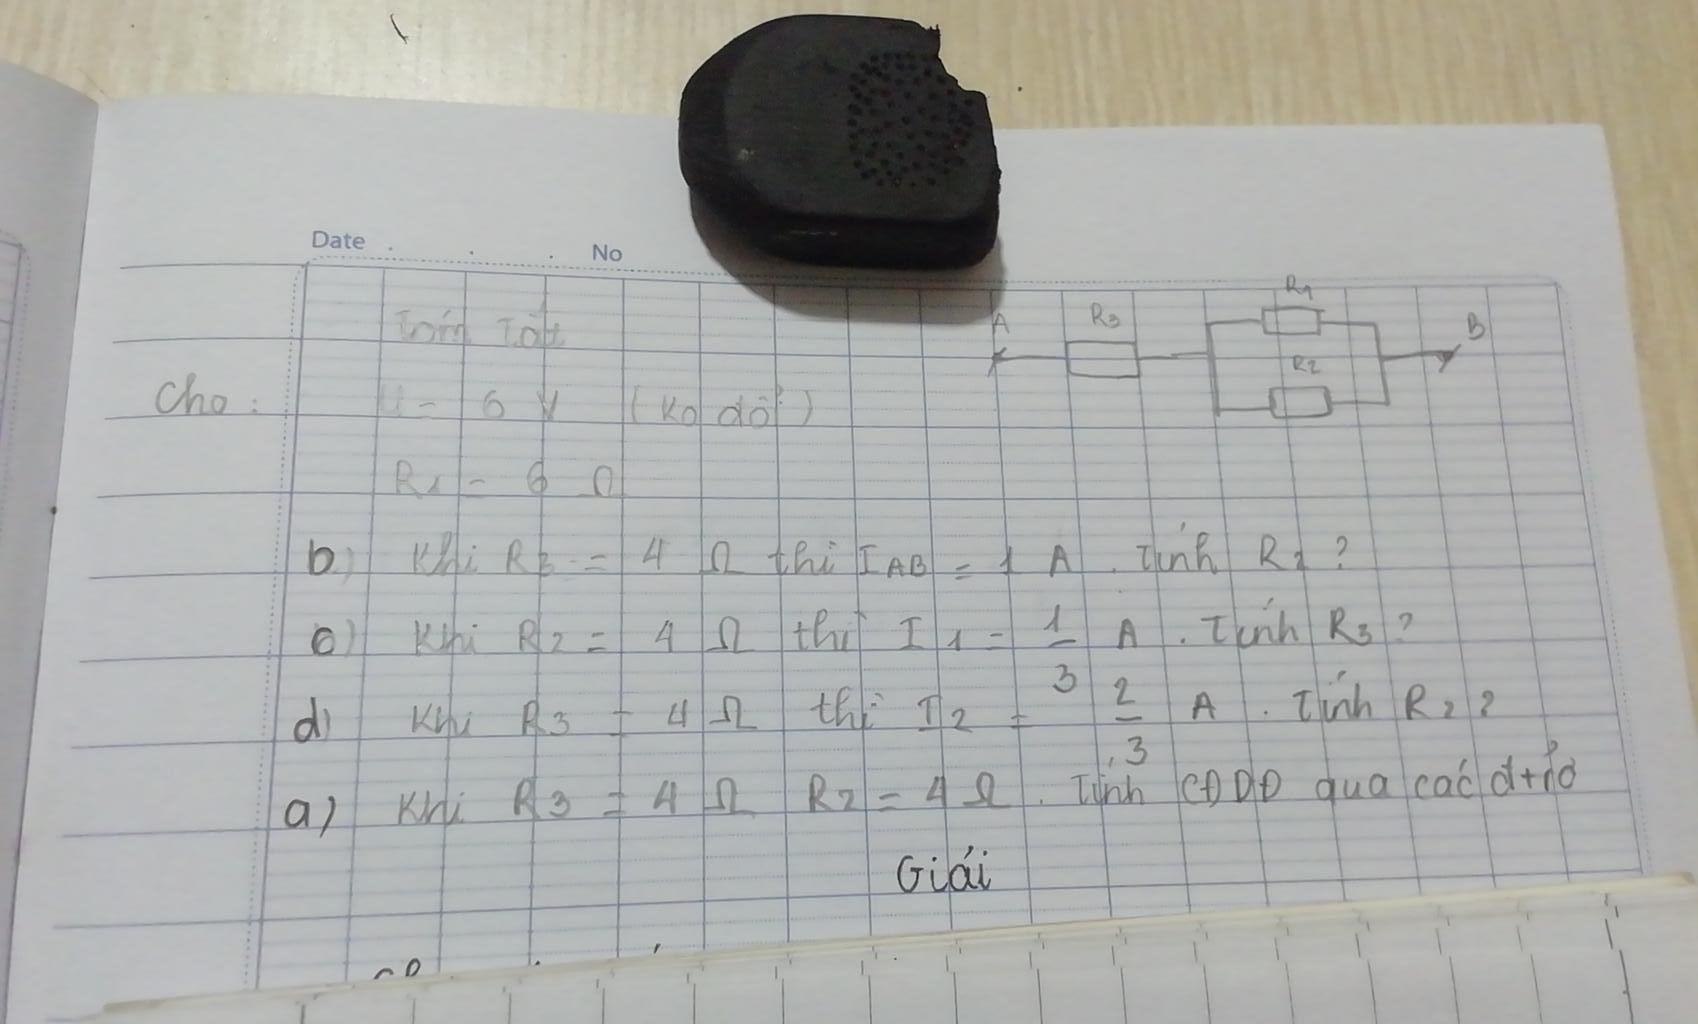 Date No
Tóm Tắt
A R3 R1 R2 B
Cho: U = 6 V (Ko đổi)
R1 = 6 Ω
b) Khi R3 = 4 Ω thì IAB = 1 A. Tính R2?
c) Khi R2 = 4 Ω thì I1 = 1/3 A. Tính R3?
d) Khi R3 = 4 Ω thì I2 = 2/3 A. Tính R2?
a) Khi R3 = 4 Ω R2 = 4 Ω. Tính CĐDĐ qua các đ+trở
Giải